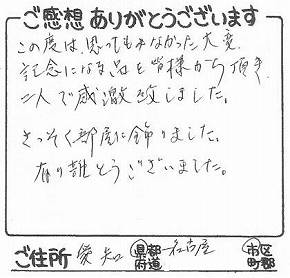 ご感想ありがとうございます
この度は、思ってもみなかった大変
記念になる品を皆様から頂き
二人で感激致しました。
さっそく部屋に飾りました。
有り難とうございました。
ご住所 愛知 県都府道 名古屋 市区町郡